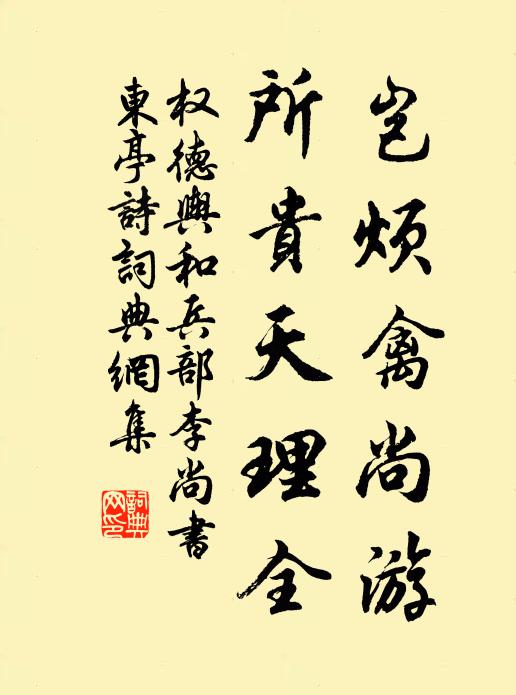 岂烦禽尚游
所贵天理全
权德舆和兵部李尚书
东亭诗词典网集
词典
网印